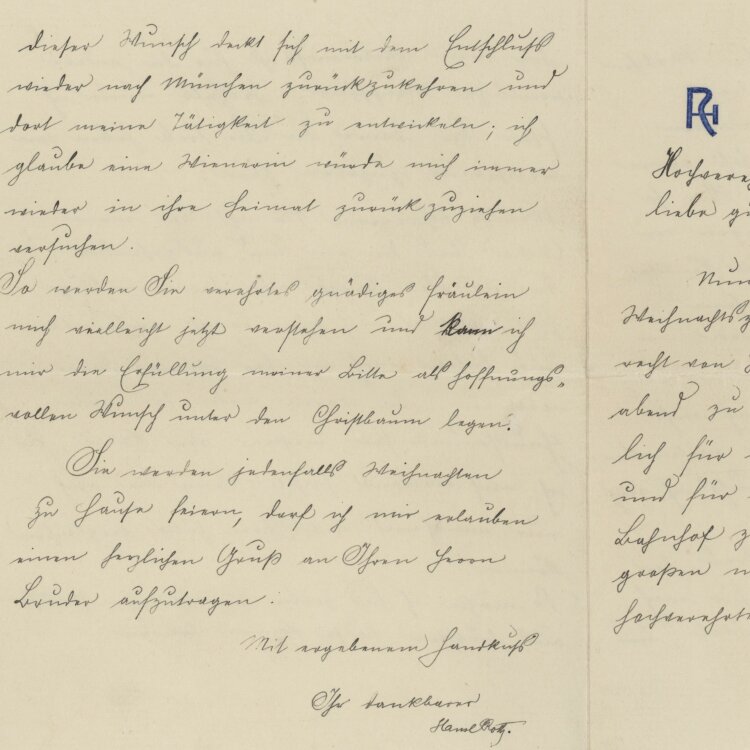 dieser Wunsch deckt sich mit dem Entschluß
wieder nach München zurückzukehren und
dort meine Tätigkeit zu entwickeln; ich
glaube eine Wienerin würde mich immer
wieder in ihre Heimat zurückzuziehen
versuchen.
So werden Sie verehrtes gnädiges Fräulein
mich vielleicht jetzt verstehen und kann ich
mir die Erfüllung meiner Bitte als hoffnungs-
vollen Wunsch unter den Christbaum legen.
Sie werden jedenfalls Weihnachten
zu Hause feiern, darf ich mir erlauben
einen herzlichen Gruß an Ihren Herrn
Bruder aufzutragen.
Mit ergebenem Handkuß
Ihr dankbarer
Hansl
Hochvere
liebe g
Nun
Weihnachts
recht von
abend zu
lich für
und für
Bahnhof z
großen
hochverehrte